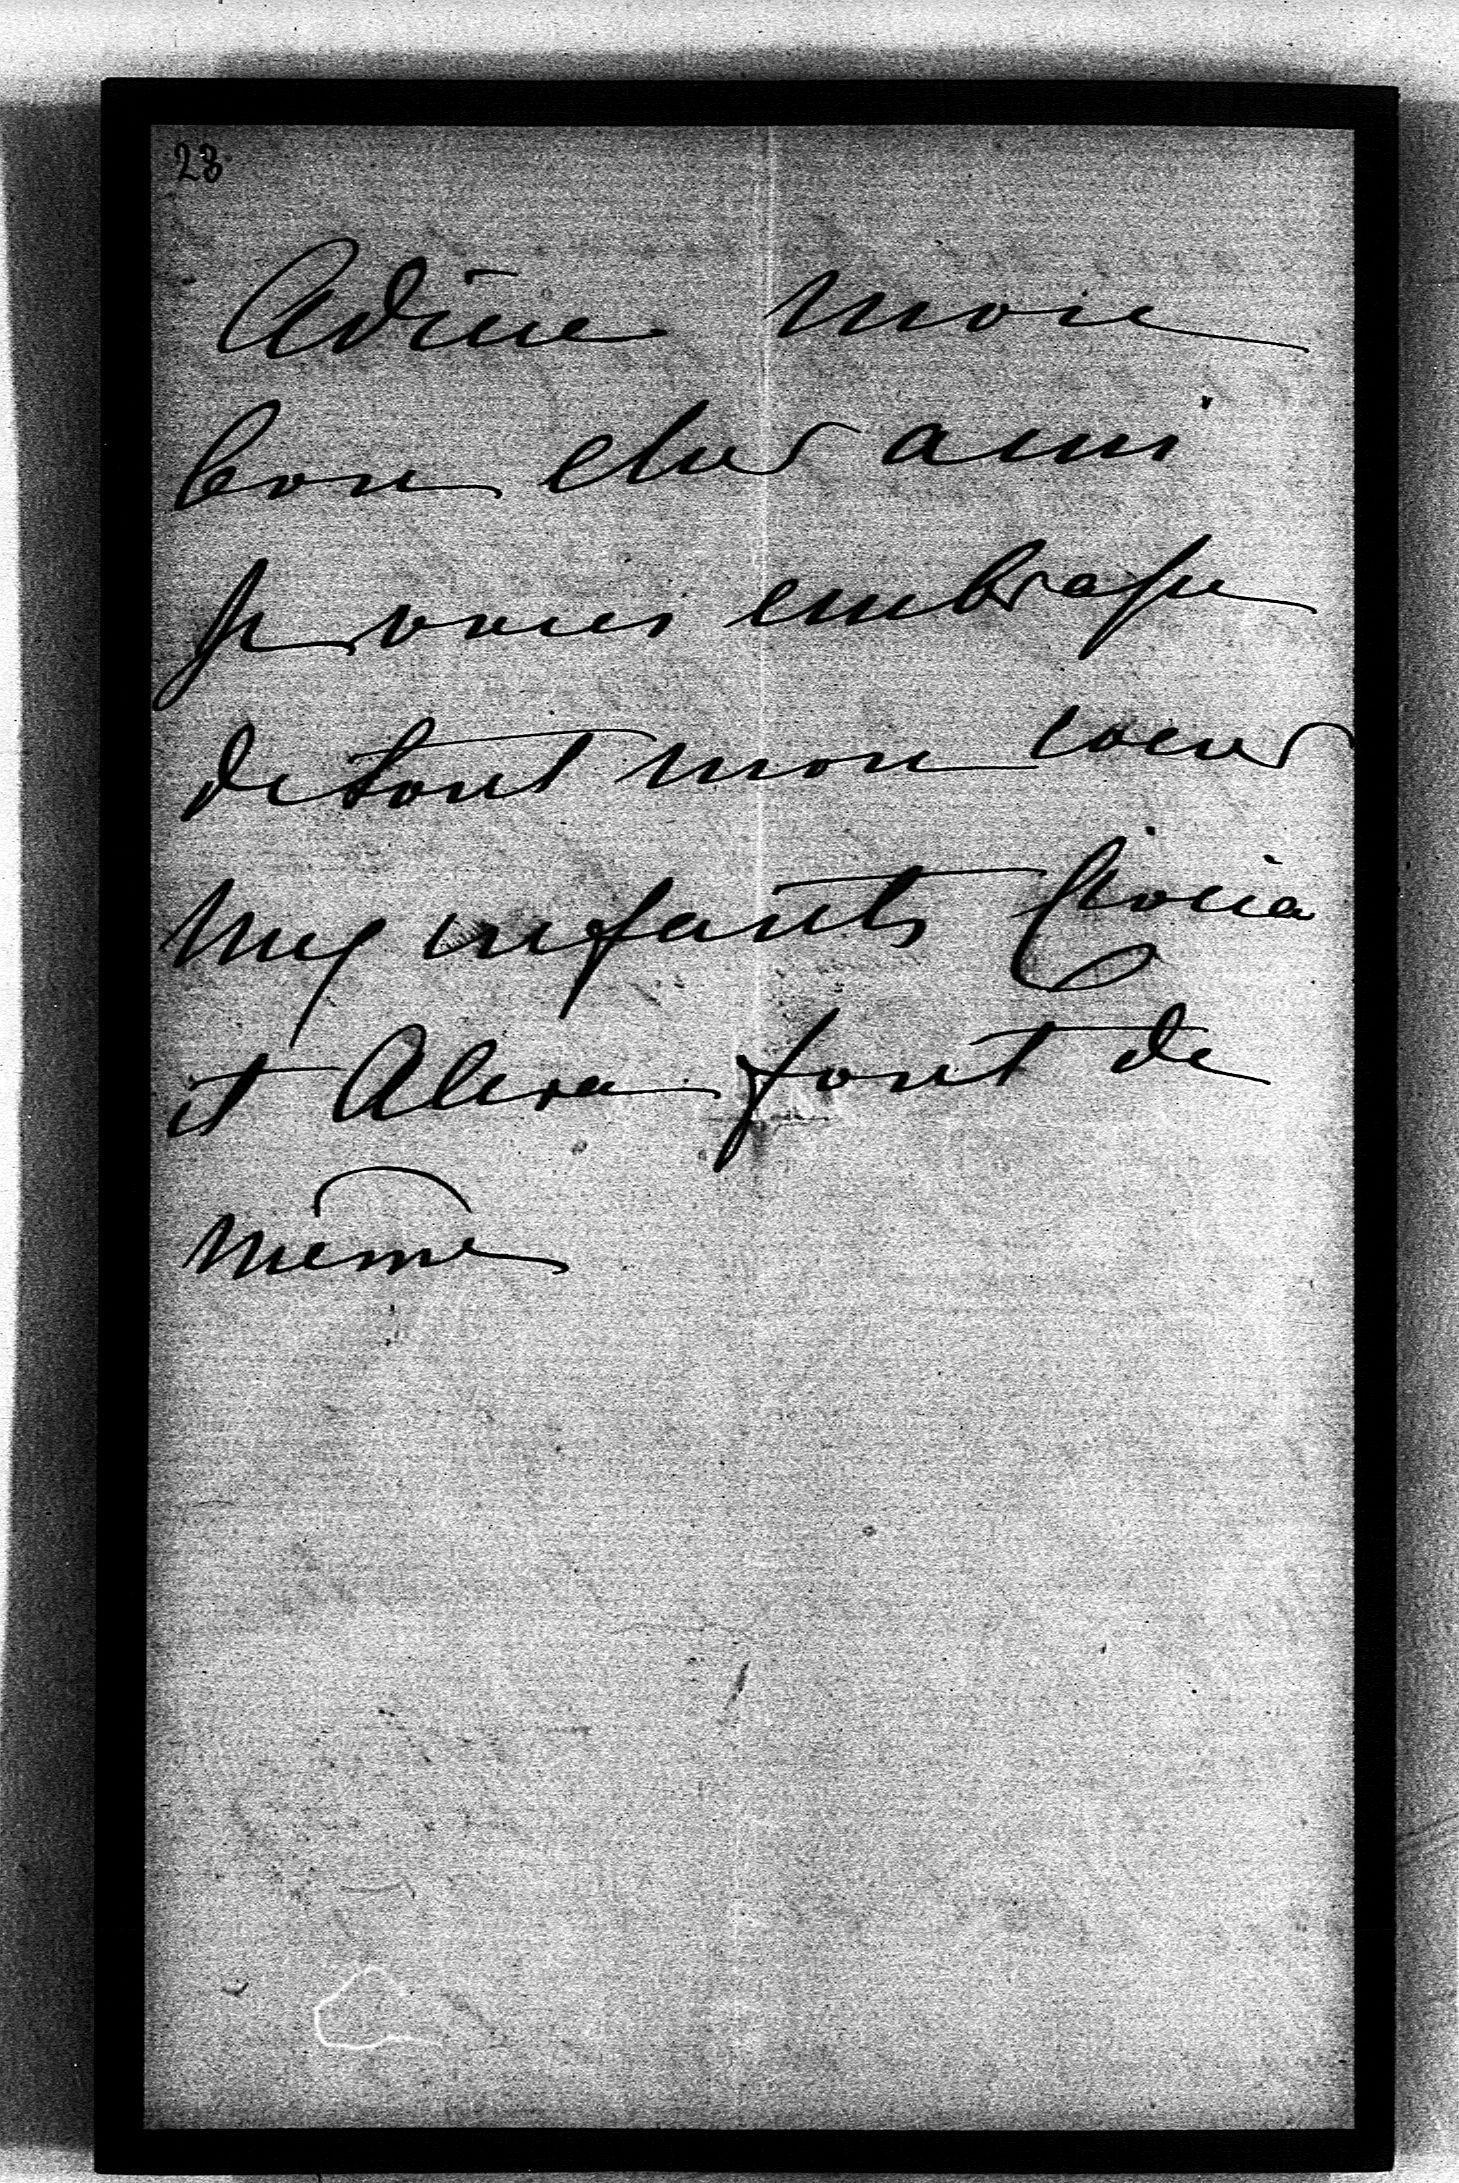 28
Adieu mon
bon cher ami
Je vous embrasse
de tout mon coeur
Mes enfants
et Alexa font de
même